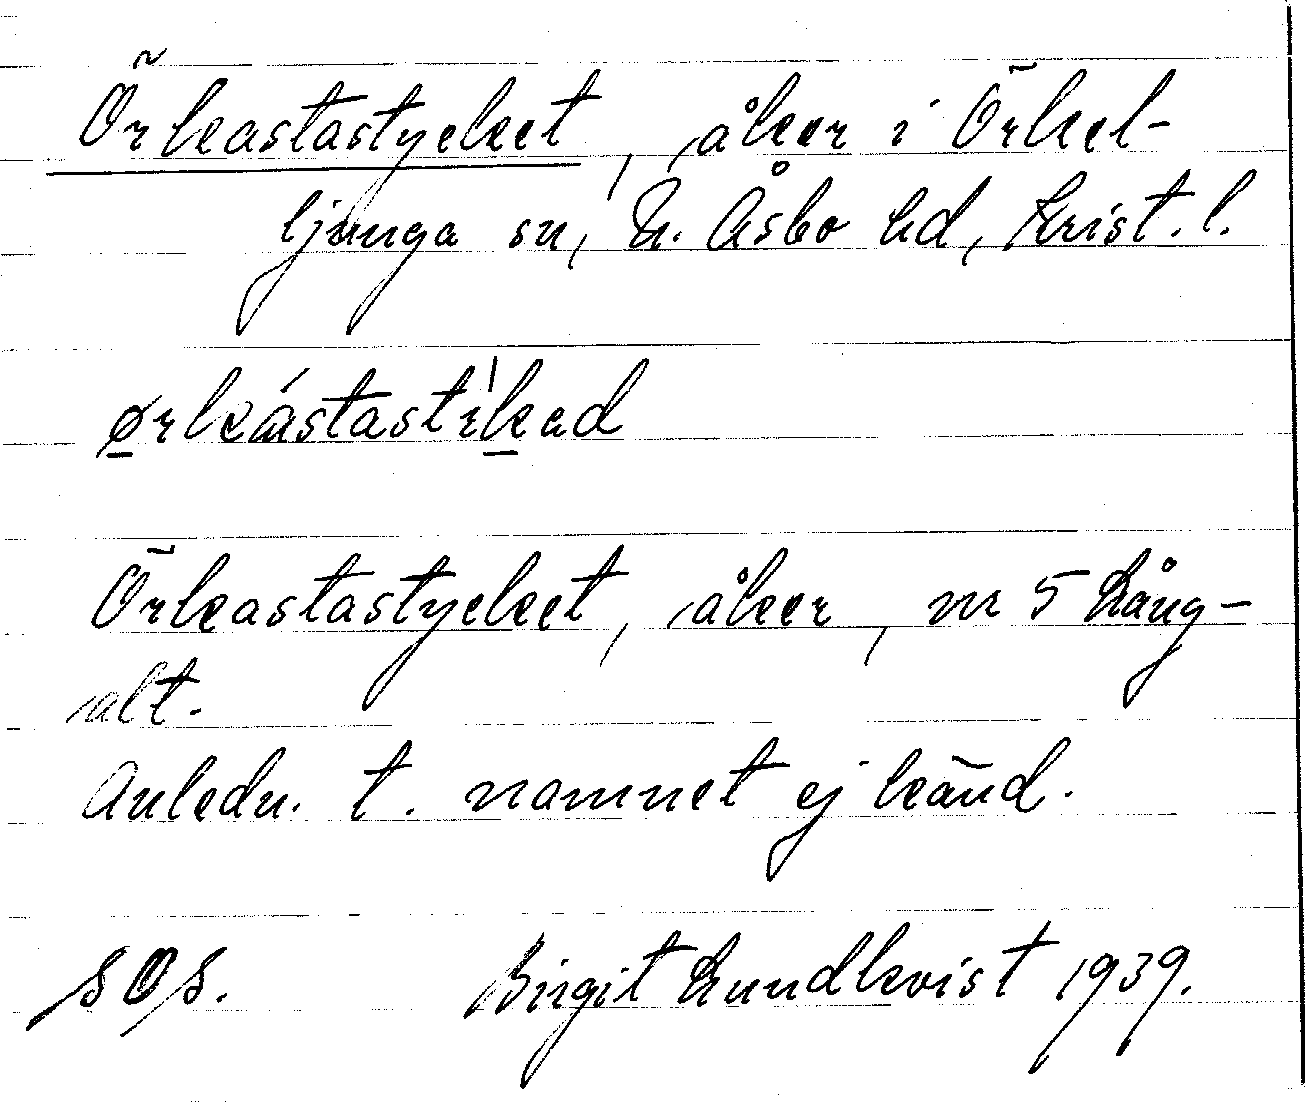 Örkastastycket, åker i Örkel-
ljunga sn, N. Åsbo hd, Krist. l.
ørkástastìkəd
Örkastastycket, åker, nr 5 Lång-
alt.
Anledn. t. namnet ej känd.
SOS. Birgit Lundkvist 1939.